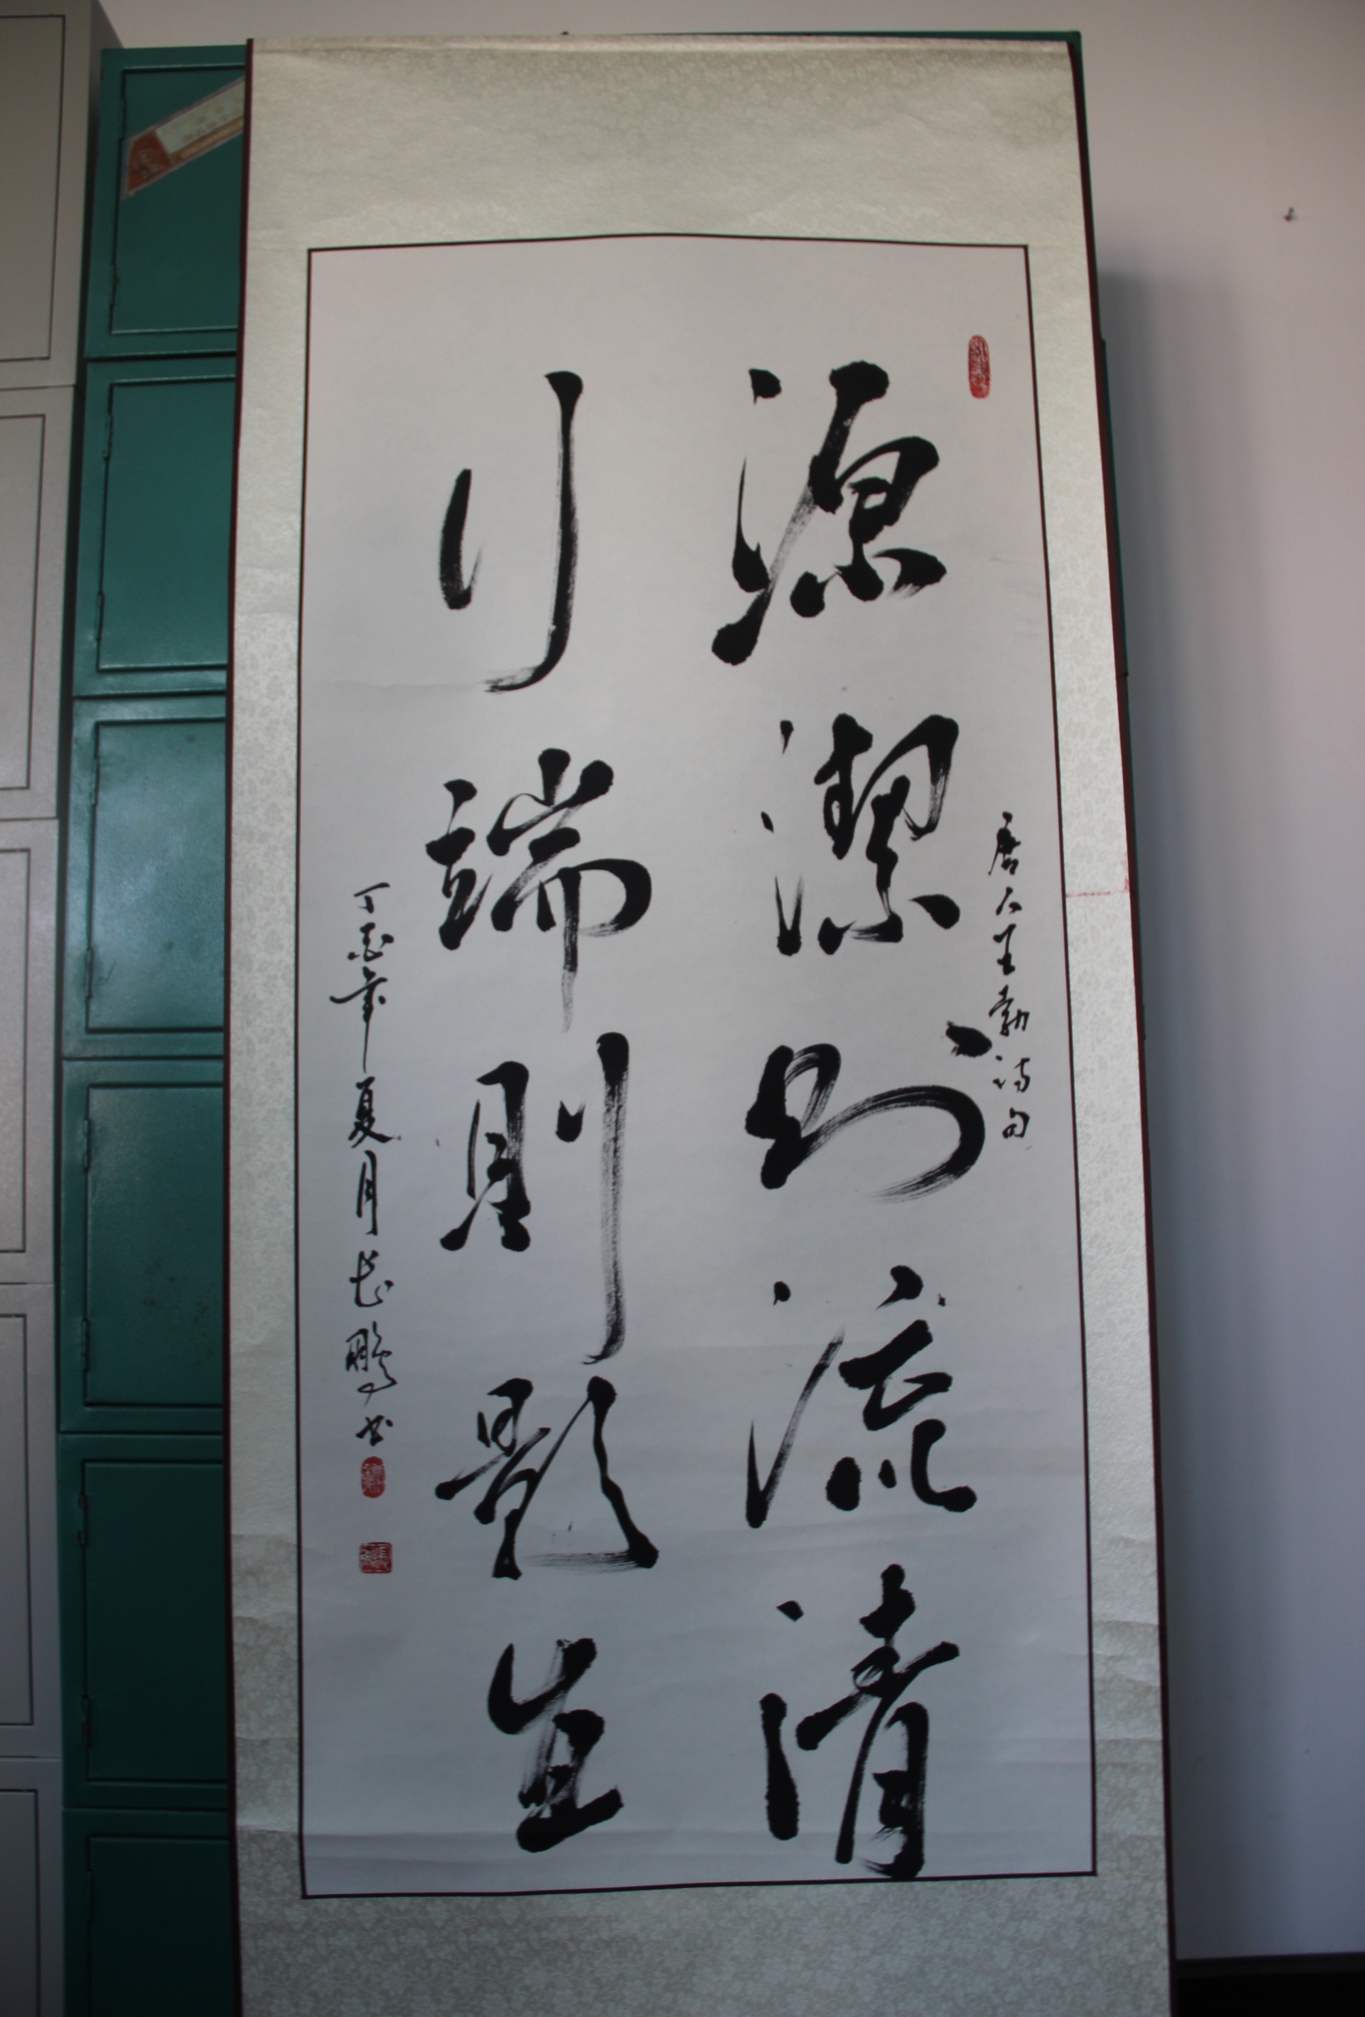 唐人王勃詩句
源潔則流清
行端則影直
丁亥年夏月長鵬書